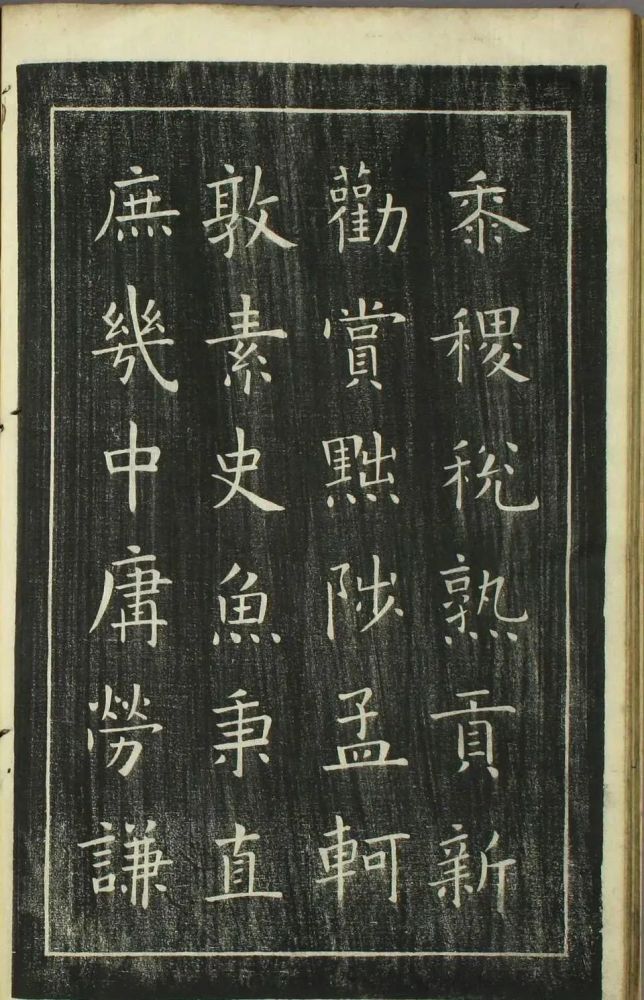 黍稷稅熟貢新
勸賞黜陟孟軻
敦素史魚秉直
庶幾中庸勞謙